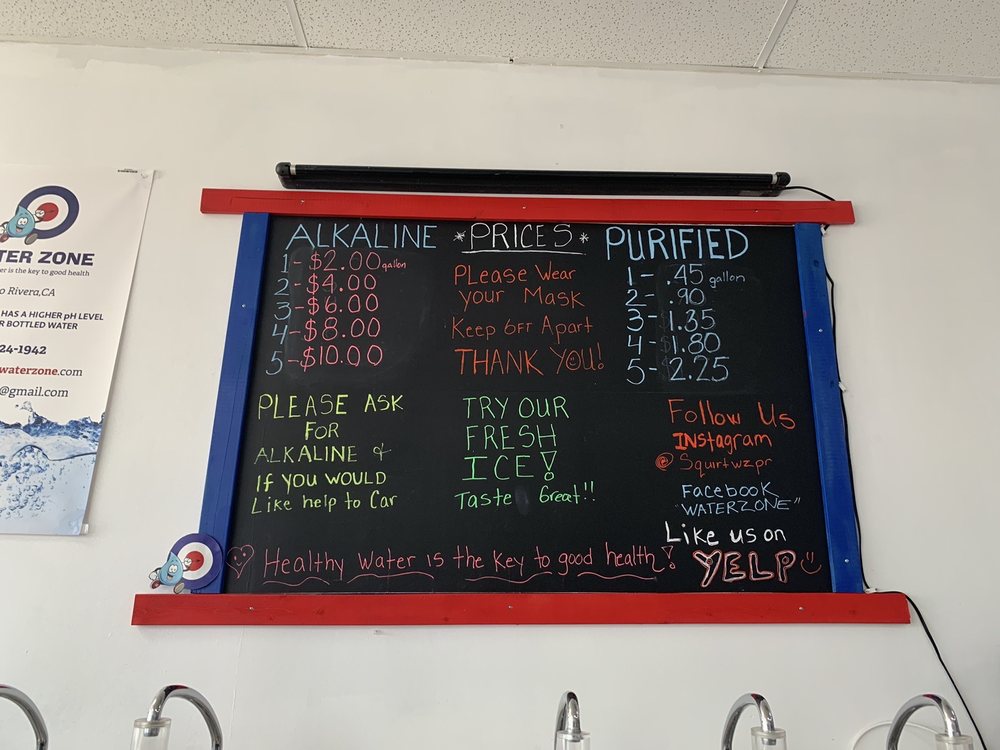 TER ZONE
er is the key to good health
o Rivera,CA
HAS A HIGHER pH LEVEL
R BOTTLED WATER
24-1942
waterzone.com
@gmail.com
ALKALINE
1-$2.00 gallon
2-$4.00
3-$6.00
4-$8.00
5-$10.00
*PRICES*
Please Wear
your Mask
Keep 6FT Apart
THANK YOU!
PURIFIED
1- .45 gallon
2- .90
3- 1.35
4- $1.80
5- 2.25
PLEASE ASK
FOR
ALKALINE &
If YOU WOULD
Like help to Car
TRY OUR
FRESH
ICE!
Taste Great!!
Follow Us
INstagram
@Squirtwzpr
Facebook
"WATERZONE"
Like us on
YELP
Healthy Water is the Key to good health!